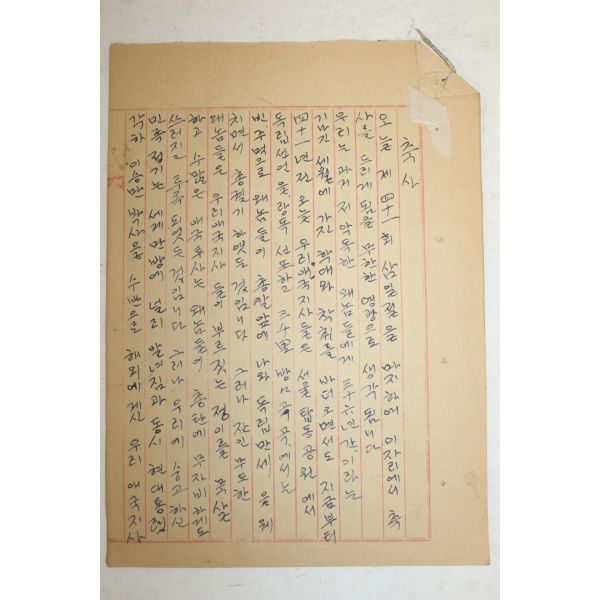 축사
오늘 제 四十一회 삼일절을 마지하여 이자리에서 축
사를 드리게됨을 무한한 영광으로 생각됩니다
우리는 과거 저 악독한 왜놈들에게 三十六년간이라는
기나긴 세월에 가진 학대와 착취를 바더오면서도 지금부터
四十一년전 오늘 우리애국지사들은 서울 탑동공원에서
독립선언을 랑독 선포하고 三千里 방방곡곡에서는
빈주먹으로 왜놈들의 총칼앞에 나와 독립만세를
치면서 총궐기 하였든 것입니다 그러나 잔인무도한
왜놈들은 우리애국지사 들의 부르짖는 정의를 묵살
하고 수많은 애국투사는 왜놈들의 총탄에 무자비하게도
쓰러지고 되었든 것입니다 그러나 우리에 숭고하신
민족정기는 세계만방에 널리 알여짐과 동시 현대통령
각하 이승만박사을 수반으로 해외에게신 우리 애국지사